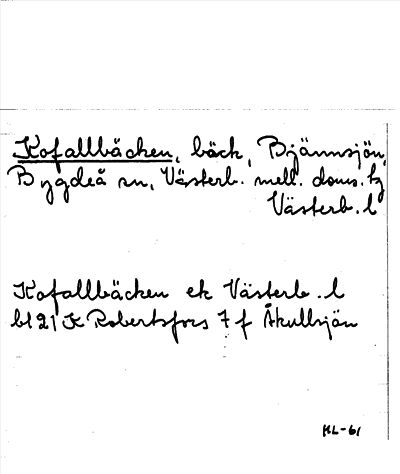 Kofallbäcken, bäck, Bjännsjön,
Bygdeå sn, Västerb. mell. doms. tg
Västerb. l
Kofallbäcken ek Västerb. l
bl 21 K Robertsfors 7 f Åkullsjön
KL-61